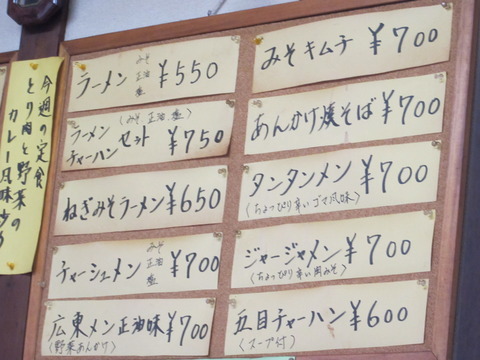 今週の定食
とり肉と野菜の
カレー風味炒め
ラーメン みそ 正油 塩 ¥550
ラーメン(みそ 正油 塩)
チャーハン セット ¥750
ねぎみそラーメン ¥650
チャーシュメン みそ 正油 塩 ¥700
広東メン正油味 ¥700
(野菜あんかけ)
みそキムチ ¥700
あんかけ焼そば ¥700
タンタンメン ¥700
(ちょっぴり辛いゴマ風味)
ジャージャメン ¥700
(ちょっぴり辛い肉みそ)
五目チャーハン ¥600
(スープ付)